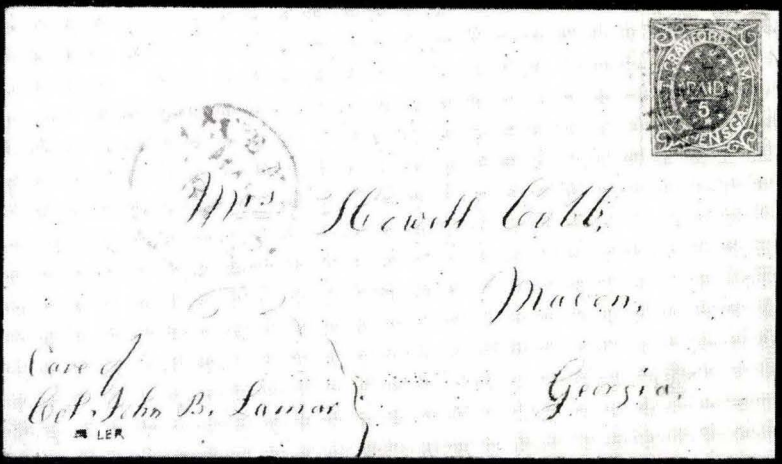 T. CRAWFORD, P.M.
PAID
5
ENS GA.
Mrs. Howell Cobb,
Macon,
Georgia.
Care of
Col. John B. Lamar
LER